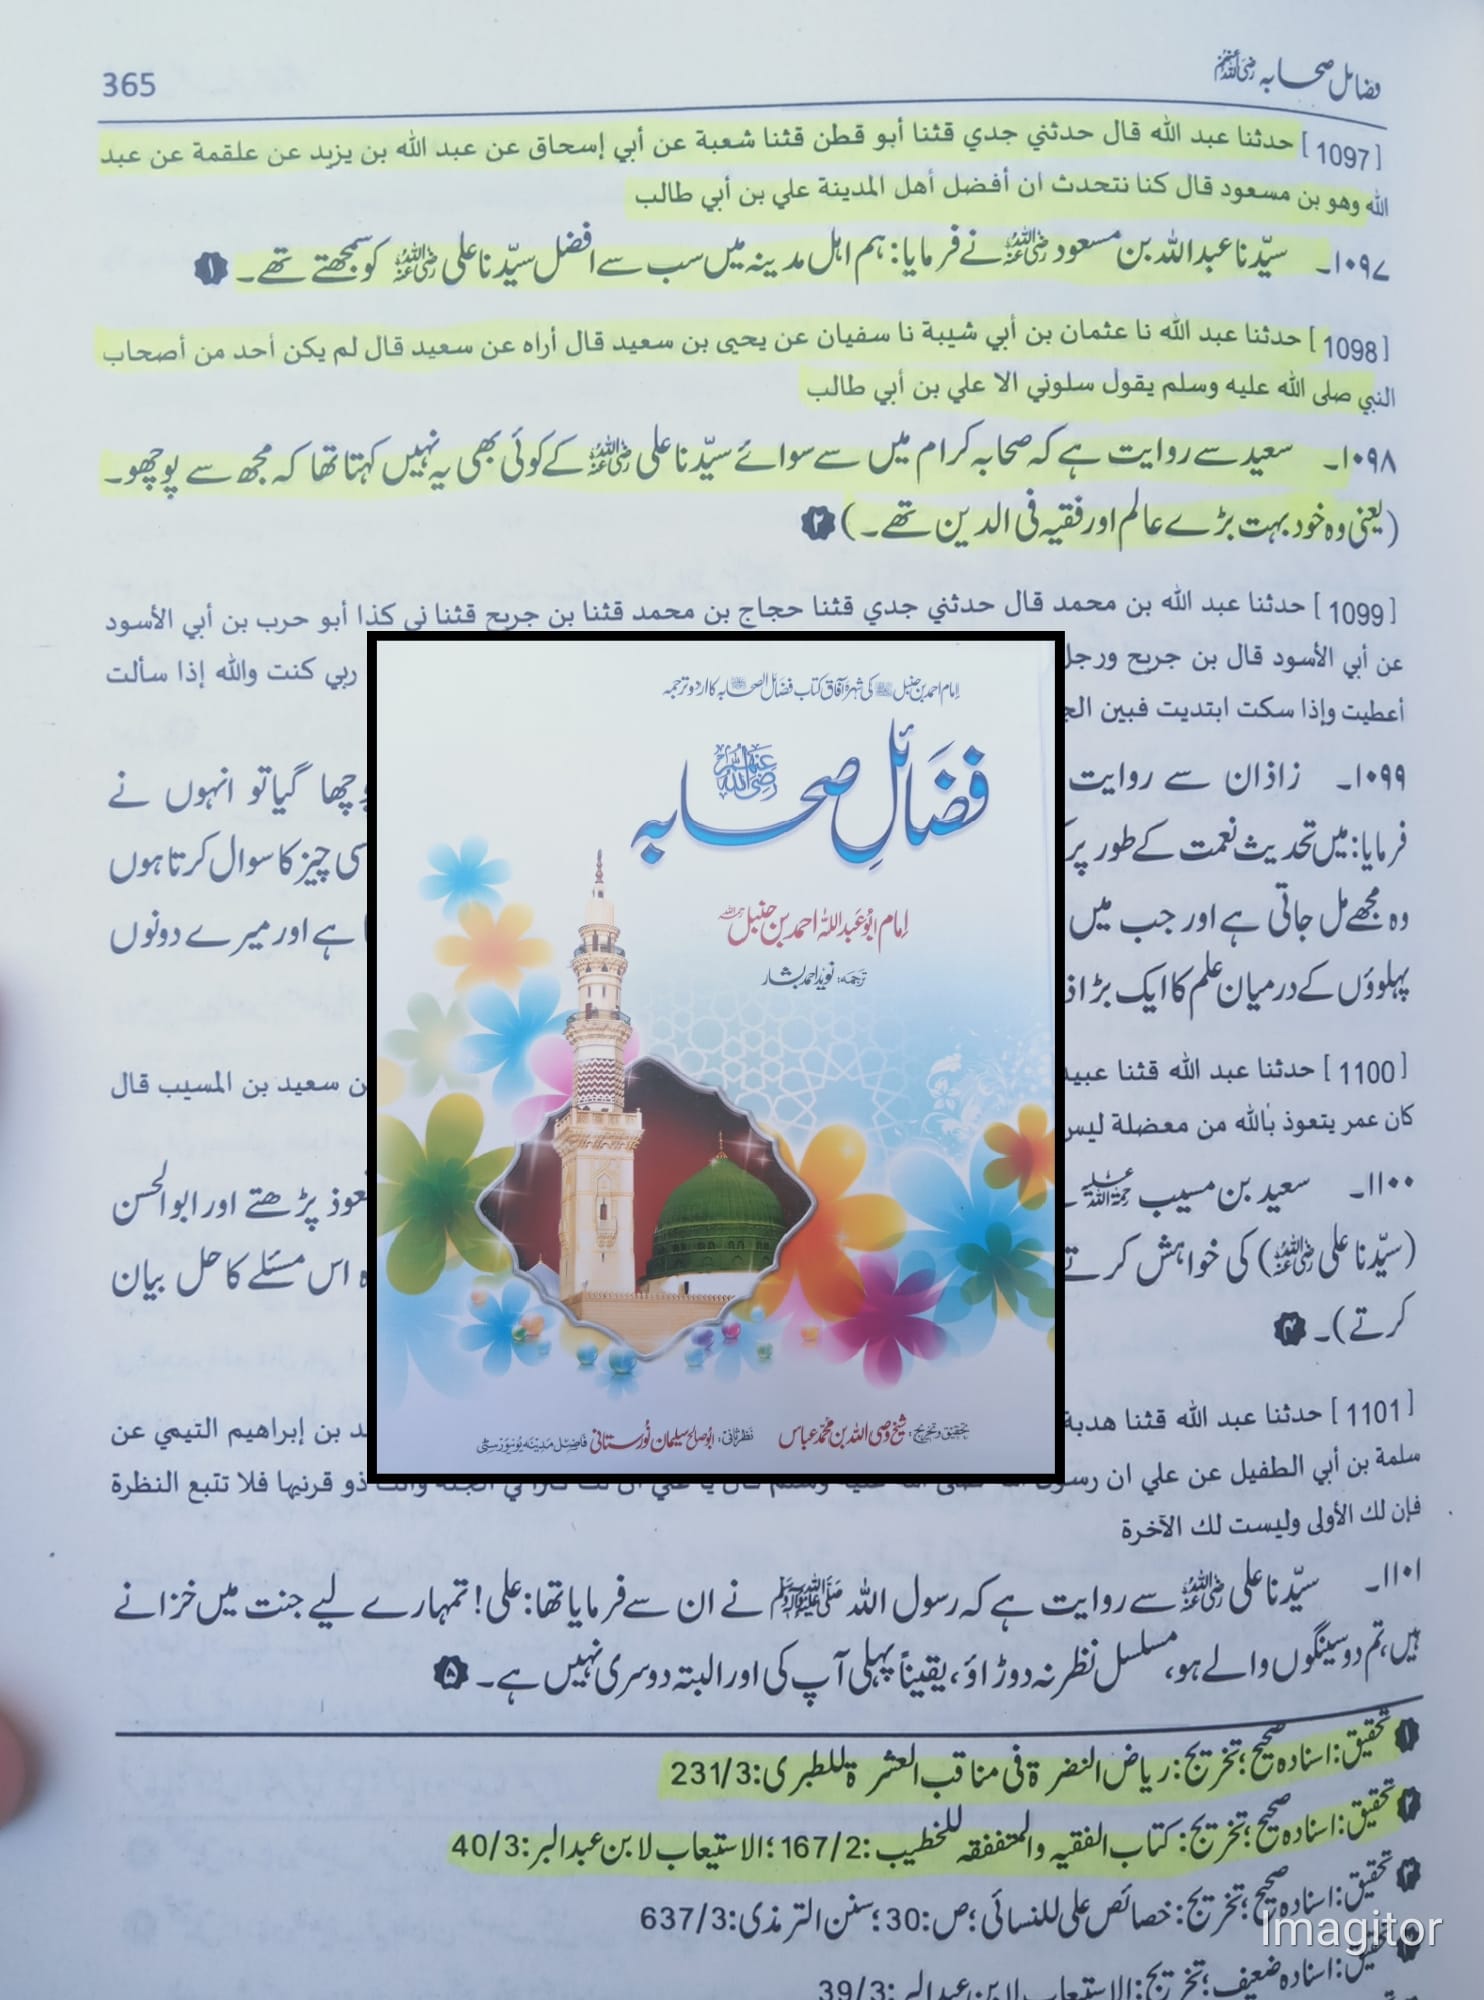 فضائل صحابہ رضی اللہ عنہم
365
[1097] حدثنا عبد الله قال حدثني جدي قثنا أبو قطن قثنا شعبة عن أبي إسحاق عن عبد الله بن يزيد عن علقمة عن عبد
الله وهو بن مسعود قال كنا نتحدث ان أفضل أهل المدينة علي بن أبي طالب
۱۰۹۷۔ سیّدنا عبداللہ بن مسعود رضی اللہ عنہ نے فرمایا: ہم اہل مدینہ میں سب سے افضل سیّدنا علی رضی اللہ عنہ کو سمجھتے تھے۔ ۱
[1098] حدثنا عبد الله نا عثمان بن أبي شيبة نا سفيان عن يحيى بن سعيد قال أراه عن سعيد قال لم يكن أحد من أصحاب
النبي صلى الله عليه وسلم يقول سلوني الا علي بن أبي طالب
۱۰۹۸۔ سعید سے روایت ہے کہ صحابہ کرام میں سے سوائے سیّدنا علی رضی اللہ عنہ کے کوئی بھی یہ نہیں کہتا تھا کہ مجھ سے پوچھو۔
(یعنی وہ خود بہت بڑے عالم اور فقیہ فی الدین تھے۔) ۲
[1099] حدثنا عبد الله بن محمد قال حدثني جدي قثنا حجاج بن محمد قثنا بن جريج قثنا ني كذا أبو حرب بن أبي الأسود
عن أبي الأسود قال بن جريج ورجل ربي كنت والله إذا سألت
أعطيت وإذا سكت ابتديت فبين
۱۰۹۹۔ زاذان سے روایت پوچھا گیا تو انہوں نے
فرمایا: میں تحدیث نعمت کے طور پر چیز کا سوال کرتا ہوں
وہ مجھے مل جاتی ہے اور جب میں ہے اور میرے دونوں
پہلوؤں کے درمیان علم کا ایک بڑا
[1100] حدثنا عبد الله قثنا عبيد بن سعيد بن المسيب قال
كان عمر يتعوذ بالله من معضلة ليس
۱۱۰۰۔ سعید بن مسیب رحمۃ اللہ علیہ تعوذ پڑھتے اور ابوالحسن
(سیّدنا علی رضی اللہ عنہ) کی خواہش کرتے اس مسئلے کا حل بیان
کرتے)۔ ۴
[1101] حدثنا عبد الله قثنا هدبة بن إبراهيم التيمي عن
سلمة بن أبي الطفيل عن علي ان رسول ذو قرنيها فلا تتبع النظرة
فإن لك الأولى وليست لك الآخرة
۱۱۰۱۔ سیّدنا علی رضی اللہ عنہ سے روایت ہے کہ رسول اللہ صلی اللہ علیہ وسلم نے ان سے فرمایا تھا: علی! تمہارے لیے جنت میں خزانے
ہیں، تم دو سینگوں والے ہو، مسلسل نظر نہ دوڑاؤ، یقیناً پہلی آپ کی اور البتہ دوسری نہیں ہے۔ ۵
۱ تحقیق: اسنادہ صحیح؛ تخریج: ریاض النضرۃ فی مناقب العشرۃ للطبری: 231/3
۲ تحقیق: اسنادہ صحیح؛ تخریج: کتاب الفقیہ والمتفقہ للخطیب: 167/2؛ الاستیعاب لابن عبدالبر: 40/3
۳ تحقیق: اسنادہ صحیح؛ تخریج: خصائص علی للنسائی؛ ص: 30؛ سنن الترمذی: 637/3
۴ تحقیق: اسنادہ ضعیف؛ تخریج: الاستیعاب لابن عبدالبر: 39/3
امام احمد بن حنبل رحمہ اللہ کی شہرہ آفاق کتاب فضائل الصحابہ کا اردو ترجمہ
فَضَائلِ صحابہ رضی اللہ عنہم
امام ابو عبداللہ احمد بن حنبل رحمہ اللہ
ترجمہ: نوید احمد بشار
تحقیق و تخریج: شیخ وصی اللہ بن محمد عباس
نظر ثانی: ابو صالح سلیمان نورستانی فاضل مدینہ یونیورسٹی
Imagitor